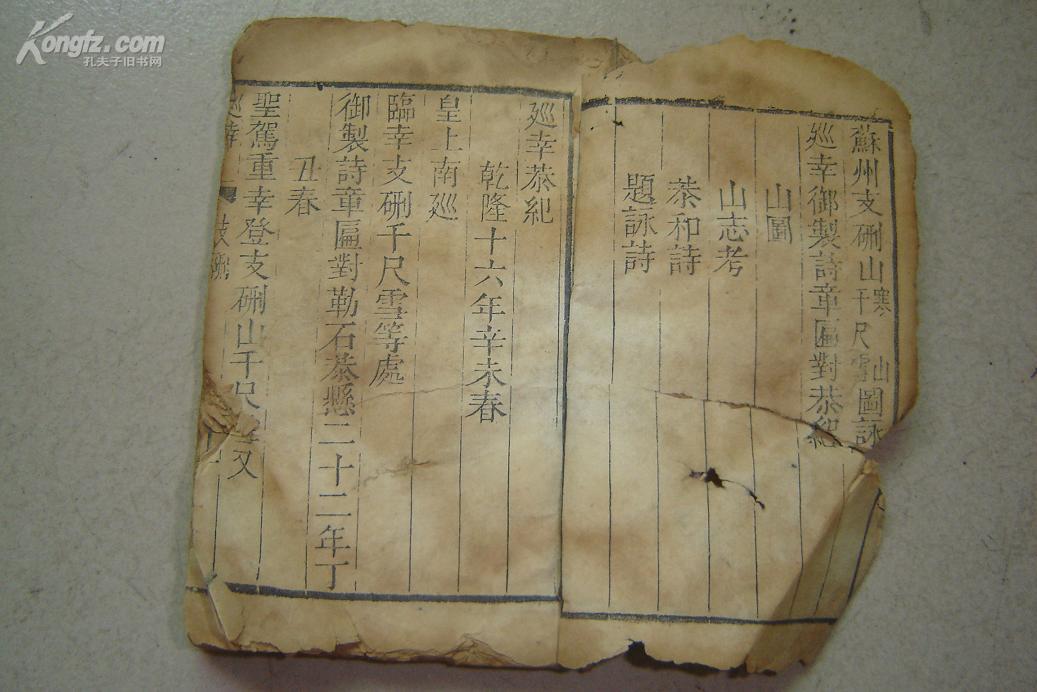 Kongfz.com
孔夫子旧书网
蘇州支硎山寒山千尺雪圖詠
廵幸御製詩章匾對恭紀
山圖
山志考
恭和詩
題詠詩
廵幸恭紀
乾隆十六年辛未春
皇上南廵
臨幸支硎千尺雪等處
御製詩章匾對勒石恭懸二十二年丁
丑春
聖駕重幸登支硎山千尺雪又
廵幸